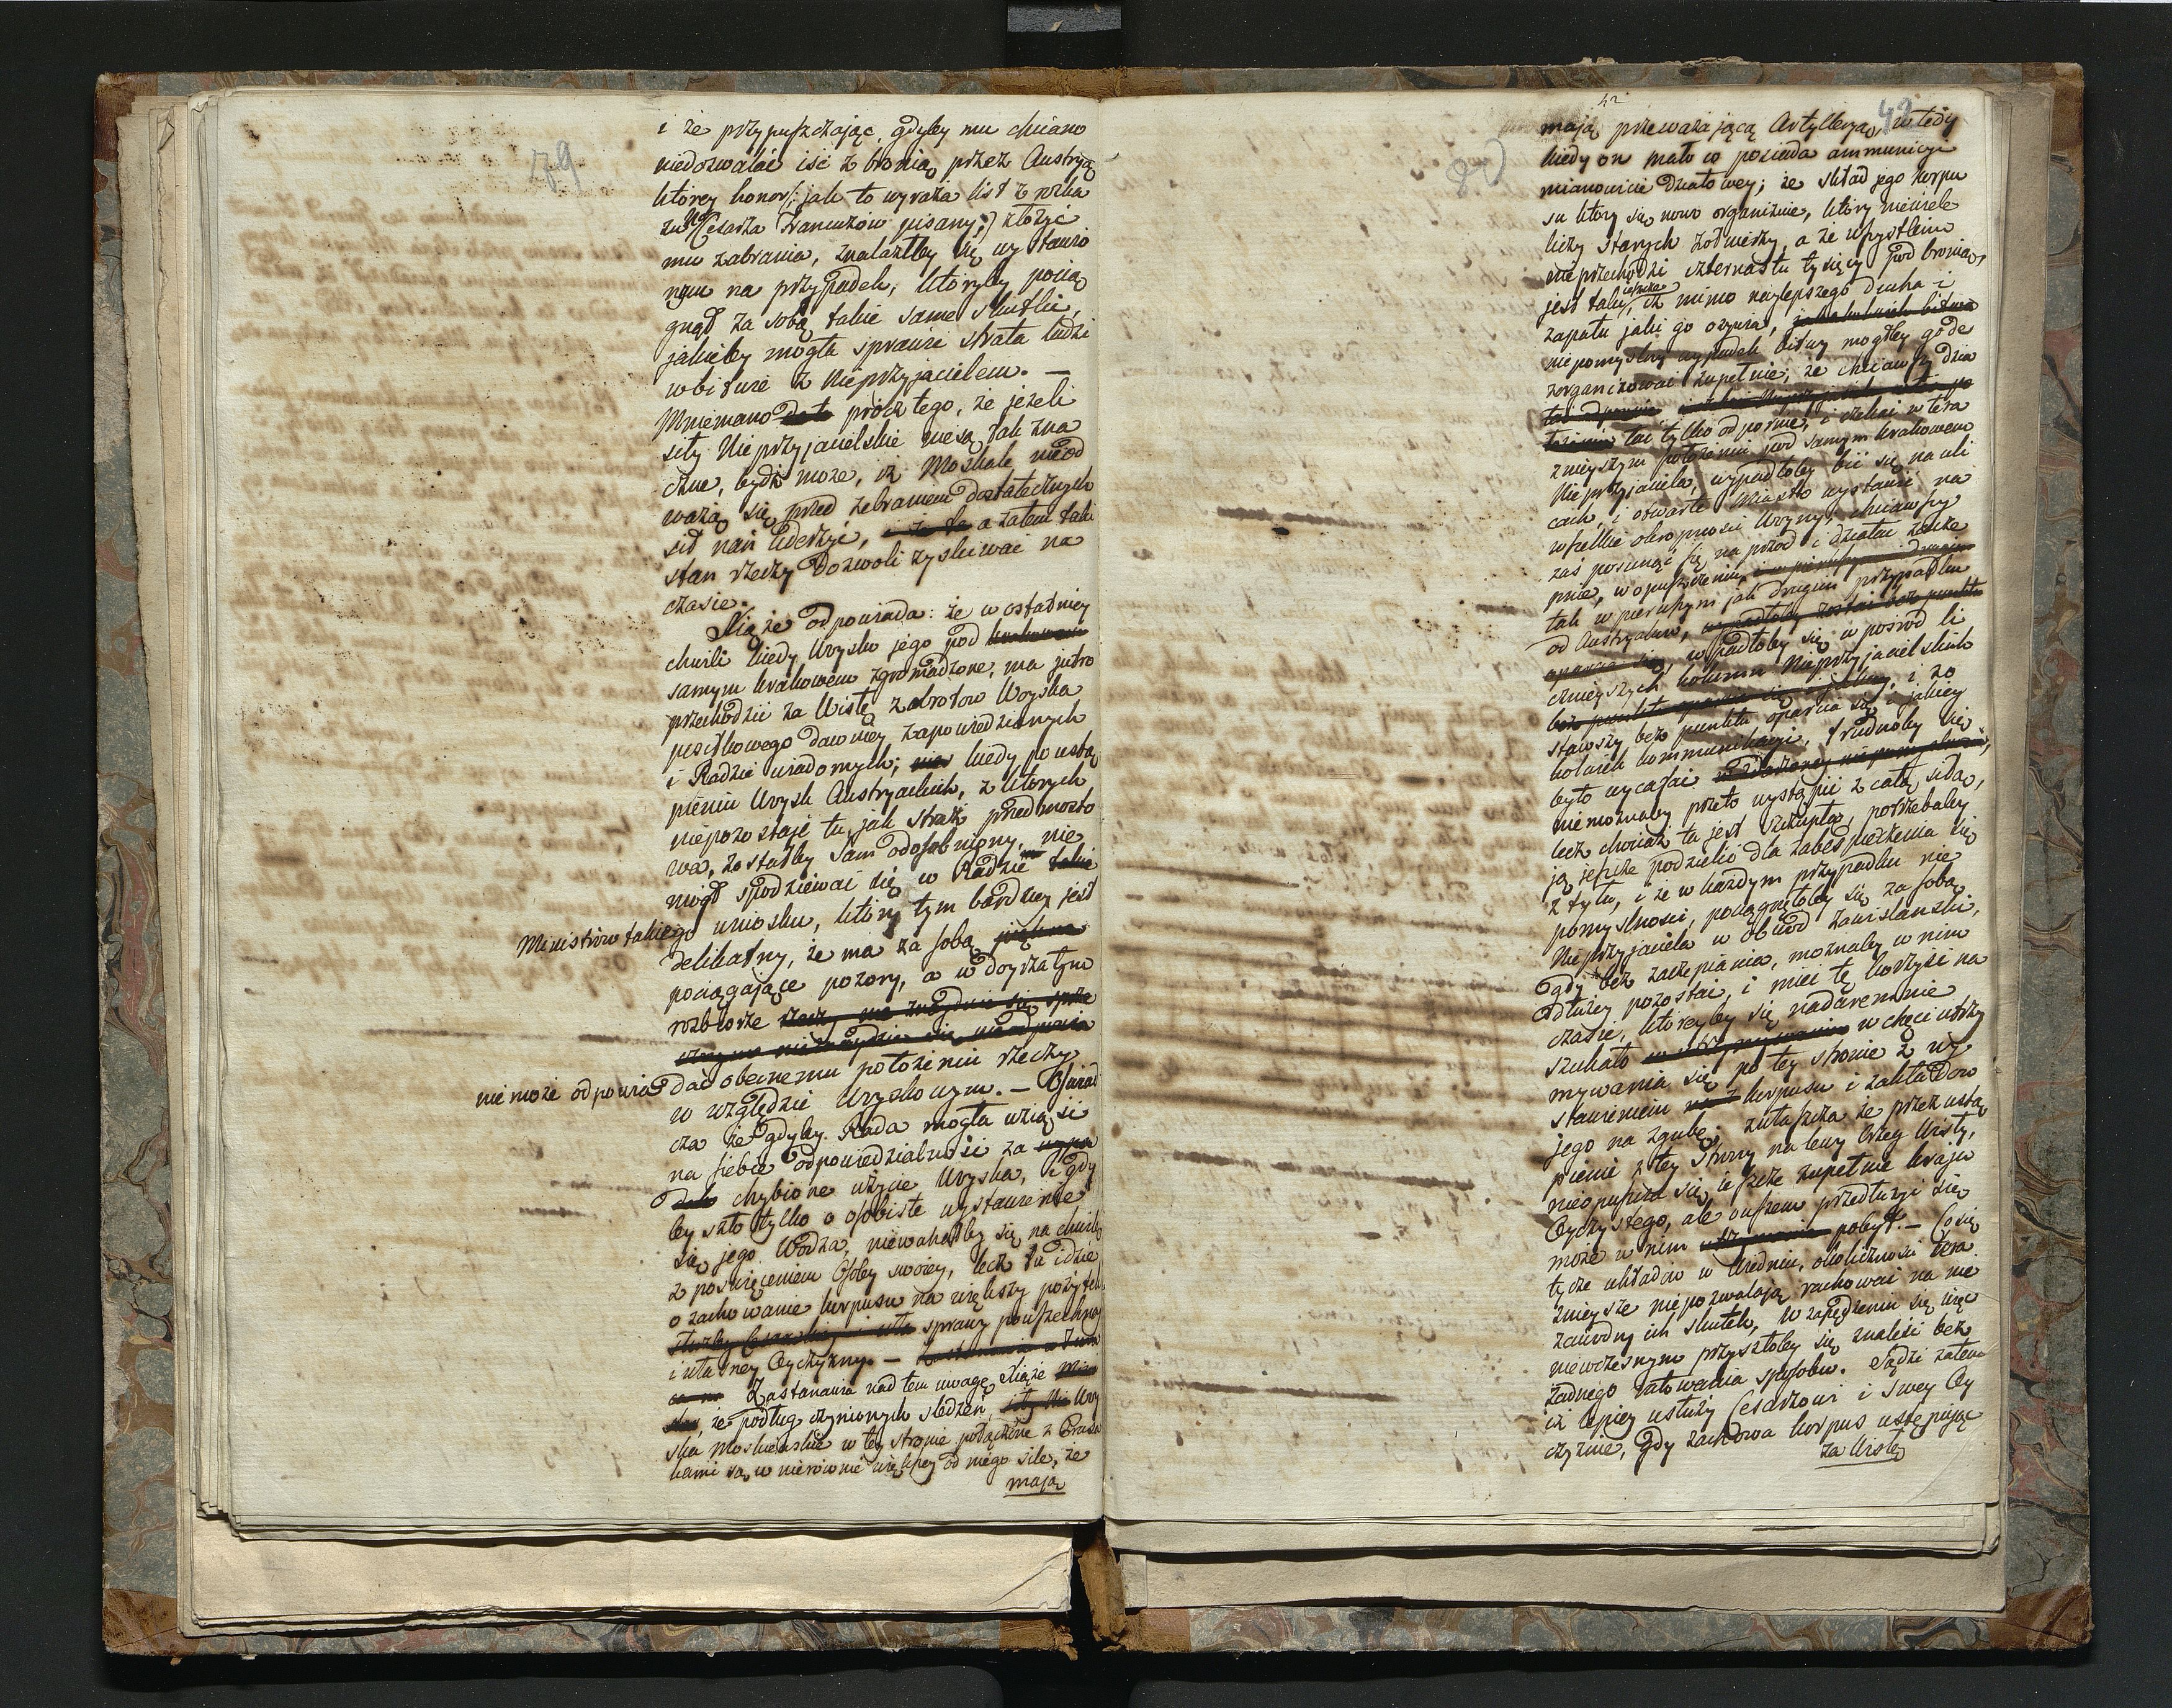 79
i że przypuszczając, gdyby mu chciano
niedozwalać iść z bronią przez Austryą
którey honor /: jak to wyraża list z rozka
zu N. Cesarza Francuzów pisany :/ złożyć
mu zabrania, znalazłby się wystawio
nym na przypadek, któryby pocią
gnął za sobą takie same skutki,
jakieby mogła sprawić strata ludzi
w bitwie z Nieprzyjacielem. —
Mniemano prócz tego, że jeżeli
siły Nieprzyjacielskie niesą tak zna
czne, bydź może, iż Moskale nieod
ważą się przed zebraniem dostatecznych
sił nań uderzyć, a zatem taki
stan rzeczy dozwoli zyskiwać na
czasie.
Xiąże odpowiada: że w ostatniey
chwili kiedy Woysko jego pod
samym Krakowem zgromadzone, ma jutro
przechodzić za Wisłę z obrotów Woyska
posiłkowego dawniey zapowiedzianych
i Radzie wiadomych; kiedy po ustą
pieniu Woysk Austryackich, z których
niepozostaje tu jak straż przedmosto
wa, zostałby sam odosobniony, nie
mógł spodziewać się w Radzie
Ministrów takiego wniosku, który tym bardziey jest
delikatny, że ma za sobą
pociągające pozory, a w doyrzałym
rozbiorze
nie może odpowia dać obecnemu położeniu rzeczy
w względzie Woyskowym. — Oświad
cza że gdyby Rada mogła wziąść
na siebie odpowiedzialność za
chybione użycie Woyska, i gdy
by szło tylko o osobiste wystawienie
się jego Wodza, niewahałby się na chwilę
z poswięceniem Osoby swoiey, lecz tu idzie
o zachowanie korpusu na większy pożytek
sprawy powszechney
i własney Oyczyzny. —
Zastanawia nad tem uwagę Xiąże
że podług czynionych sledzeń Woy
ska Moskiewskie w tey stronie połączone z Prusa
kami są w nierównie większey od niego sile, że
mają
42
42
80
mają przeważającą Artylleryą, wtedy
kiedy on mało co posiada ammunicyi
mianowicie działowey; że skład jego korpu
su który się nowo organizuie, który niewiele
liczy starych żołnierzy, a że wszystkiem
nieprzechodzi czternastu tysięcy pod bronią,
jest taki, iż mimo naylepszego ducha i
zapału jaki go ożywia,
niepomyslny wypadek bitwy mógłby go de
zorganizować zupełnie; że chciawszy dzia
łać tylko odpornie, i czekać w tera
znieyszym położeniu pod samym Krakowem
Nieprzyjaciela, wypadłoby bić się na uli
cach, i otwarte Miasto wystawić na
wszelkie okropności Woyny, chciawszy
zaś posunąć się na przód i działać zacze
pnie, w opuszczeniu
tak w pierwszym jak drugim przypadku
od Austryaków,
wpadłoby się w posrod li
cznieyszych kolumn Nieprzyjacielskich
i zo
stawszy bez punktu oparcia się i jakiey
kolwiek kommunikacyi, trudnoby się
było wycofać
niemożnaby przeto wystąpić z całą siłą,
lecz chociaż ta jest szczupła, potrzebaby
ją jeszcze podzielić dla zabespieczenia się
z tyłu, i że w każdym przypadku nie
pomyslności, pociągnęłoby się za sobą
Nieprzyjaciela w obwód zawislanski,
gdy bez zaczepiania, możnaby w nim
dłużey pozostać, i mieć tę korzyść na
czasie, któreyby się nadaremnie
szukało w chęci utrzy
mywania się po tey stronie z wy
stawieniem korpusu i zakładów
jego na zgubę; zwłaszcza że przez ustą
pienie z tey strony na lewy brzeg Wisły,
nieopuszcza się jeszcze zupełnie kraju
Oyczystego, ale owszem przedłuży się
może w nim pobyt. — Co się
tycze układów w Wiedniu, okoliczności tera
znieysze niepozwalają rachować na nie
zawodny ich skutek, w zapędzeniu się więc
niewczesnym przyszłoby się znaleść bez
żadnego ratowania sposobu. Sądzi zatem
iż lepiey usłuży Cesarzowi i swey Oy
czyznie, gdy zachowa korpus ustępując
za Wisłę